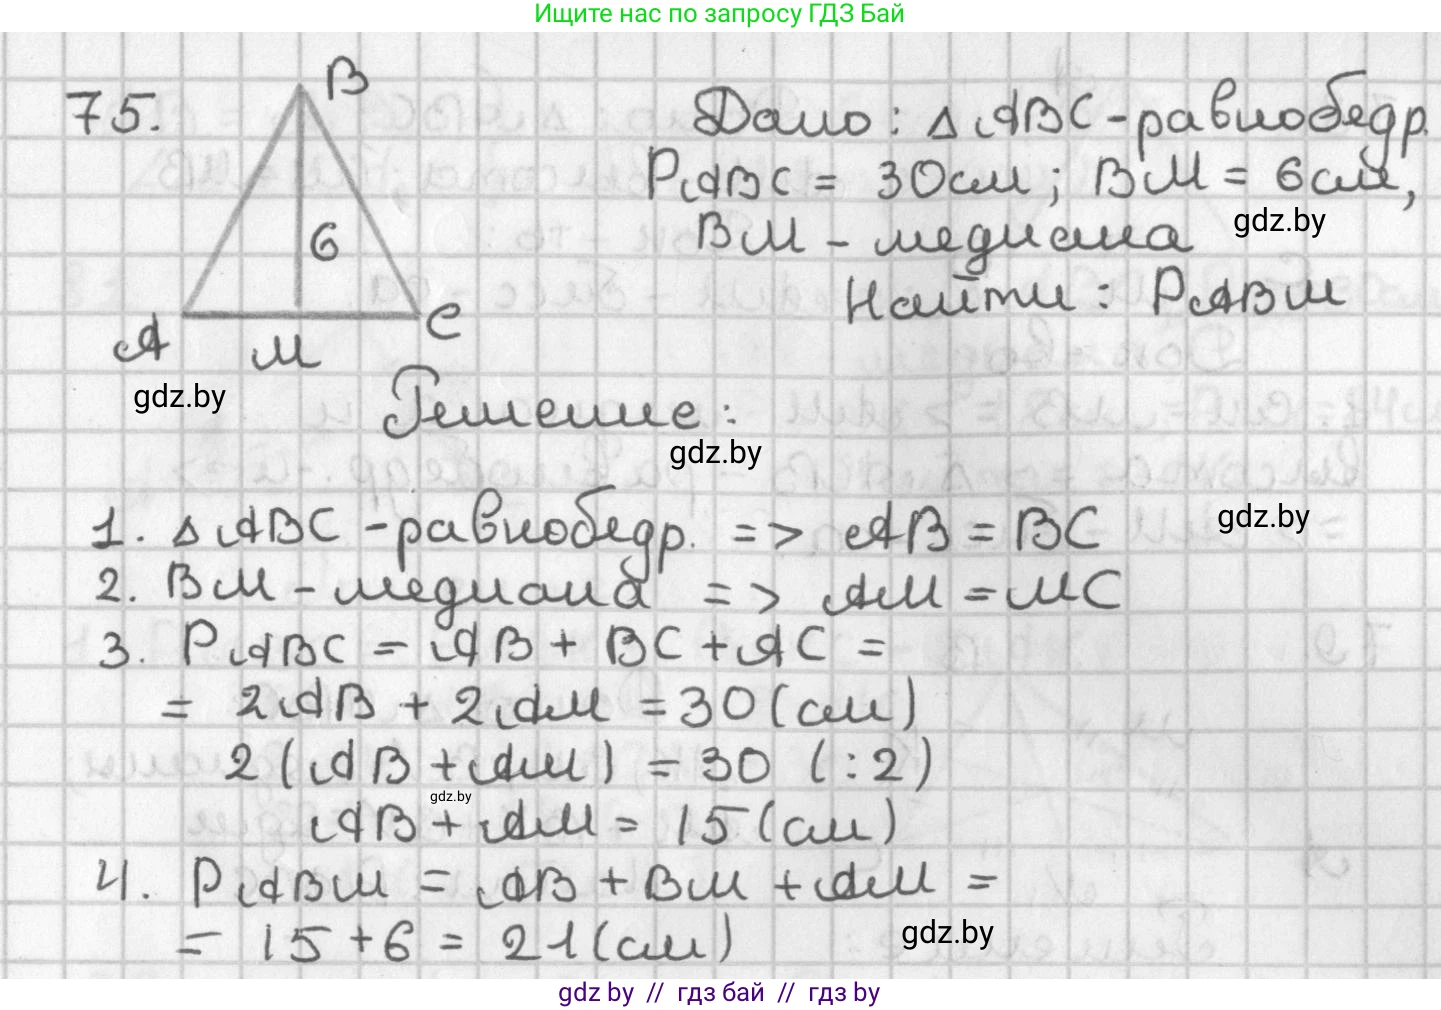 Ищите нас по запросу ГДЗ Бай
75.
B
6
A
M
C
Дано: △ABC-равнобедр.
PABC = 30см; BM = 6см,
gdz.by
BM - медиана
Найти: PABM
gdz.by
Решение:
gdz.by
gdz.by
1. △ABC -равнобедр. => AB = BC
2. BM - медиана => AM = MC
3. PABC = AB + BC + AC =
= 2AB + 2AM = 30(см)
2(AB + AM) = 30 (:2)
gdz.by
AB + AM = 15(см)
4. PABM = AB + BM + AM =
= 15 + 6 = 21(см)
gdz.by
gdz by // гдз бай // гдз by